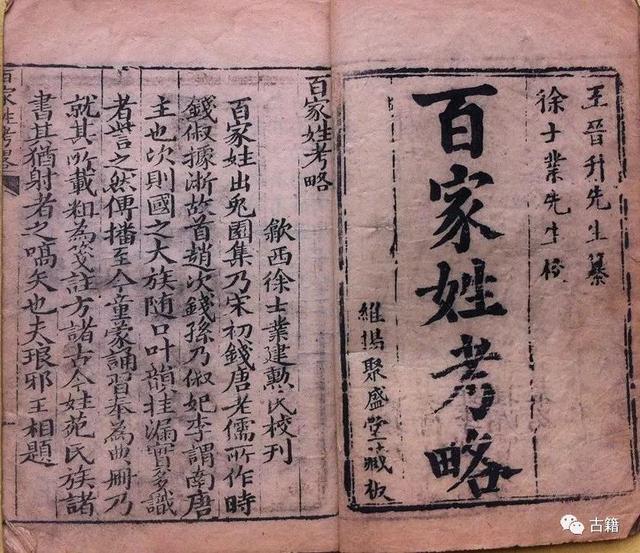 王晉升先生纂
徐士業先生校
百家姓考略
維揚聚盛堂藏板
百家姓考略
歙西徐士業建勲氏校刊
百家姓出兎園集乃宋初錢唐老儒所作時
錢俶據淛故首趙次錢孫乃俶妃李謂南唐
主也次則國之大族随口叶韻挂漏實多識
者訾之然傳播至今童蒙誦習奉為典册乃
就其所載粗為箋註方諸古今姓苑氏族諸
書其猶射者之嚆矢也夫琅邪王相題
百家姓考畧
古籍